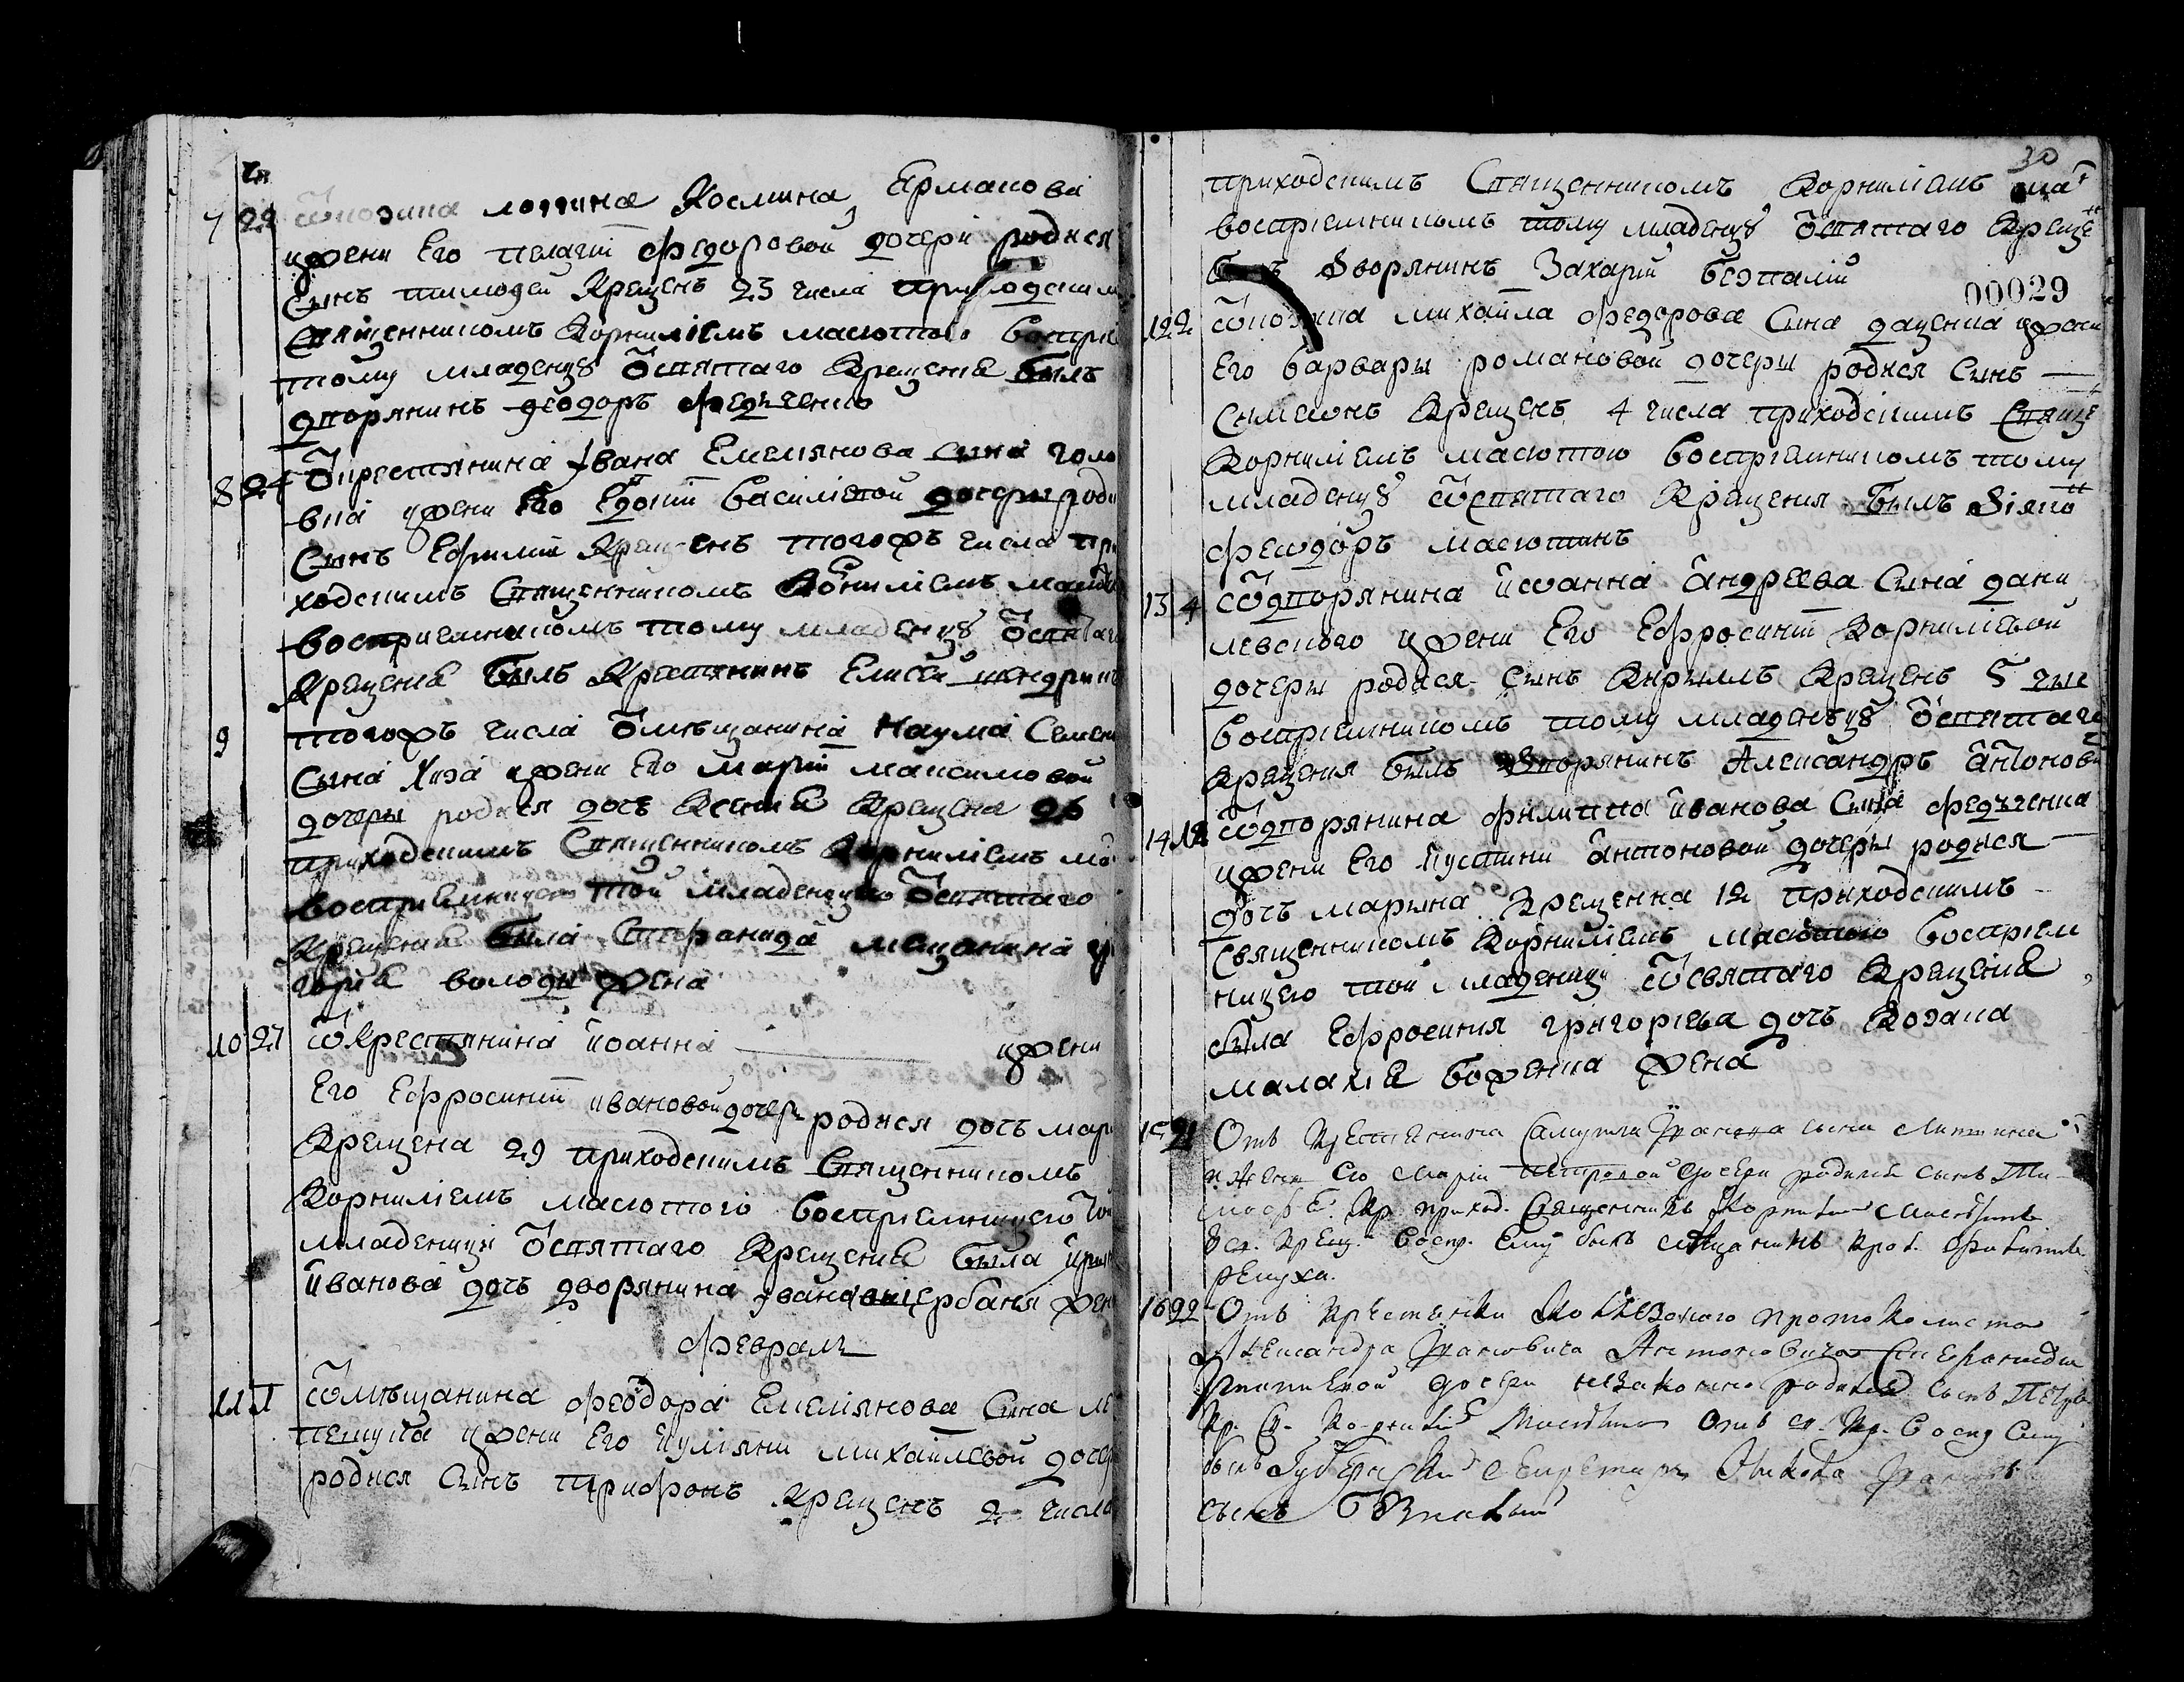 7 22 козака логгина Космина Ермакова
ижени Его пелагіи федоровой дочери родися
Сынъ тимофей Крещенъ 23 числа приходскимъ
Священникомъ Корниліемъ масютою воспри
тому младенцу ѿ святаго Крещенія былъ
дворянинъ феодоръ федченко
8 24 ѿ крестянина Ивана Емелянова сына голо
вка ижени Его Евдокіи василіевой дочери роди
Сынъ Ефимій Крещенъ тогожъ числа при
ходскимъ Священникомъ Корниліемъ масю
воспріемникомъ тому младенцу ѿ святаго
Крещенія былъ Крестянинъ Елисей
9 тогожъ числа ѿ мѣщанина Наума Семен
Сына ижени Его маріи максимовой
дочери родися дочь Ксенія Крещена 26
приходскимъ Священникомъ Корниліемъ ма
воспріемницею той младенцу ѿ святаго
Крещенія была Стефанида мещанина гри
горія володи жена
10 27 ѿ Крестянина иоанна ижени
Его Ефросиніи ивановой дочери родися дочь мар
Крещена 29 приходскимъ Священникомъ
Корниліемъ масютою воспріемницею той
младенцы ѿ святаго Крещенія была ири
иванова дочь дворянина ивана щербаня жен
февраль
11 1 ѿ мѣщанина феодора Емелянова Сына
ижени Его иуліяни михайлевой дочер
родися Сынъ трифонъ Крещенъ 2 числа
30
приходскимъ Священникомъ Корниліемъ ма
воспріемникомъ тому младенцу ѿ святаго Креще
былъ дворянинъ Захарій безпалій
00029
12 2 ѿ козака михайла федорова Сына даценка ижени
Его варвары романовой дочеры родися Сынъ
Симеонъ Крещенъ 4 числа приходскимъ Свяще
Корниліемъ масютою воспріемникомъ тому
младенцу ѿ святаго Крещения былъ діяко
феодоръ масютинъ
13 4 ѿ дворянина иоанна андреева Сына дани
левского ижени Его Ефросиніи Корниліевой
дочеры родися Сынъ Кирыллъ Крещенъ 5 чис
воспріемникомъ тому младенцу ѿ святаго
Крещения былъ дворянинъ Александръ антонови
14 12 ѿ дворянина филиппа иванова Сына федченка
ижени Его иустини антоновой дочеры родися
дочъ марына Крещенна 12 приходскимъ
Священникомъ Корниліемъ масютою воспріем
ницею той младенцы ѿ святаго Крещенія
была Ефросиния григоріева дочъ Козака
малахія боженка жена
15 21 Отъ крестянина Самуила Иванова сына
и жени Его Маріи Петровой дочери родился сынъ Ти
мофей. Кр. приход. Священникъ Корнилій Масютинъ
Ѿ св. Крещ. Воспр. Ему былъ мѣщанинъ
16 22 Отъ Крестянки Колежского протоколиста
Александра Ивановича Антоновича Стефаниды
дочери незаконно родился сынъ Петръ
Кр. Св. Корнилій Масютинъ Отъ св. Кр. Воспр Ему
былъ Губернскій Секретарь
сынъ